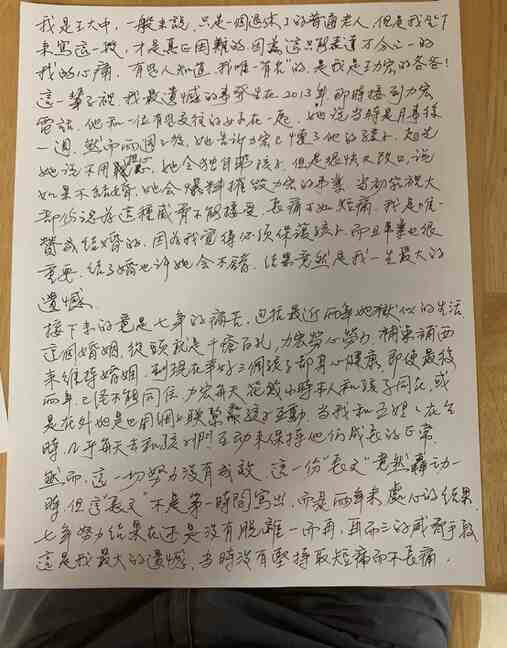 我是王大中，一般來說，只是一個退休了的普通老人，但是我坐下
來寫這一撇，才是真正困難的，因為這只能表達萬分之一的
我的心痛。有些人知道，我唯一"有名"的，是我是王力宏的爸爸！
這一輩子裡，我最遺憾的事發生在2013年，即時接到力宏
電話，他和一位有過交往的女子在一起，她說當時是月事樣
一週，然而兩週之後，她告訴力宏已懷了他的孩子，起先
她說不用擔心，她會獨自照孩子，但是很快又改口，說
如果不結婚，她會爆料摧毀力宏的事業，當初家裡大
都認為這種威脅不能接受，長痛不如短痛，我是唯一
贊成結婚的，因為我覺得必須保護孩子，而且事業也很
重要，結了婚也許她會不錯，結果竟然是我一生最大的
遺憾。
接下來的竟是七年的痛苦，包括最近兩年地獄似的生活，
這個婚姻，從頭就是千瘡百孔，力宏勞心勞力，補東補西
來維持婚姻，到現在幸好三個孩子都身心健康，即使最後
兩年，已經不能同住，力宏每天花幾小時本人和孩子同在，或
是在外地也用網上聯繫跟孩子互動，當我和王媽媽在台
時，几乎每天去和孩子們互動來保持他們成長的正常。
然而，這一切努力沒有成效，這一份"長文"竟然轟動一
時，但這"長文"不是第一時間寫出，而是兩年來處心的結果，
七年努力結果在還是沒有脫離一而再，再而三的威脅手段，
這是我最大的遺憾，當時沒有堅持取短痛而不長痛。